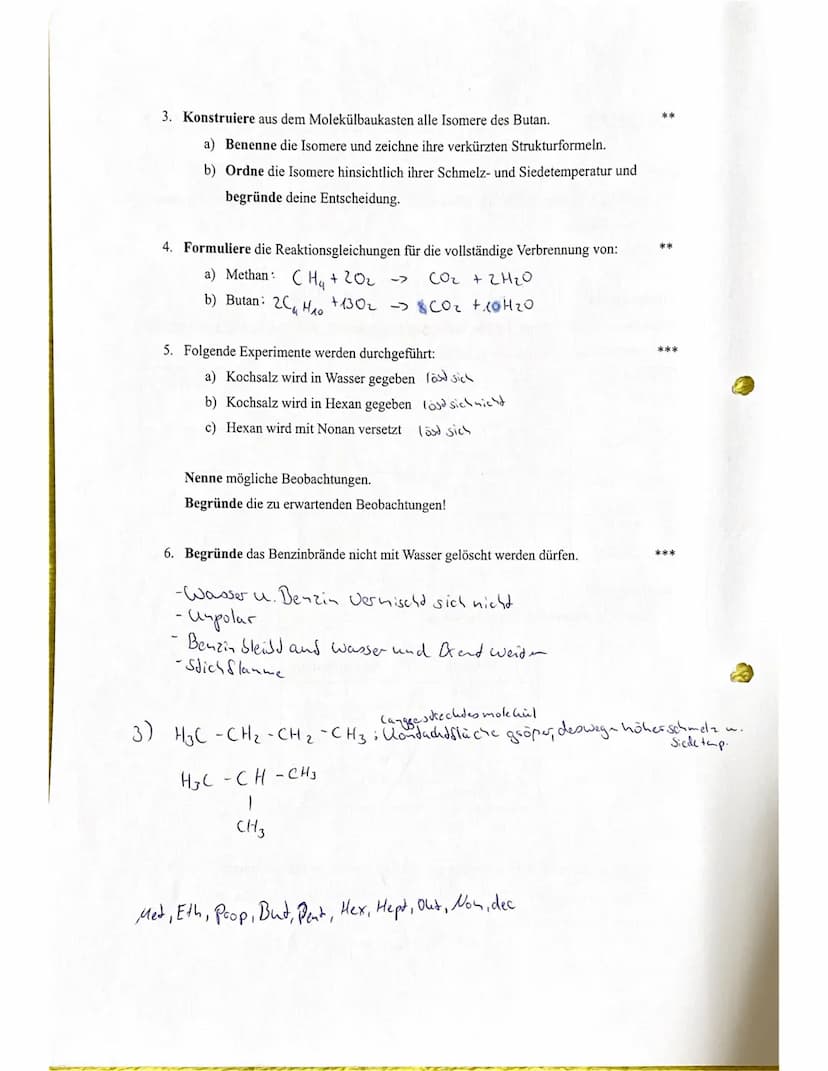 3. Konstruiere aus dem Molekülbaukasten alle Isomere des Butan. **
a) Benenne die Isomere und zeichne ihre verkürzten Strukturformeln.
b) Ordne die Isomere hinsichtlich ihrer Schmelz- und Siedetemperatur und
begründe deine Entscheidung.
4. Formuliere die Reaktionsgleichungen für die vollständige Verbrennung von: **
a) Methan: CH₄ + 2O₂ -> CO₂ + 2H₂O
b) Butan: 2C₄H₁₀ + 13O₂ -> 8CO₂ + 10H₂O
5. Folgende Experimente werden durchgeführt: ***
a) Kochsalz wird in Wasser gegeben löst sich
b) Kochsalz wird in Hexan gegeben löst sich nicht
c) Hexan wird mit Nonan versetzt löst sich
Nenne mögliche Beobachtungen.
Begründe die zu erwartenden Beobachtungen!
6. Begründe das Benzinbrände nicht mit Wasser gelöscht werden dürfen. ***
- Wasser u. Benzin vermischt sich nicht
- Unpolar
- Benzin bleibt auf Wasser und brend weiter
- Stichflamme
langgestrecktes molekül
3) H₃C - CH₂ - CH₂ - CH₃ ; Kontaktfläche größer, deswegen höher schmelz u.
Siedetemp.
H₃C - CH - CH₃
|
CH₃
Met, Eth, Prop, But, Pent, Hex, Hept, Okt, Non, dec